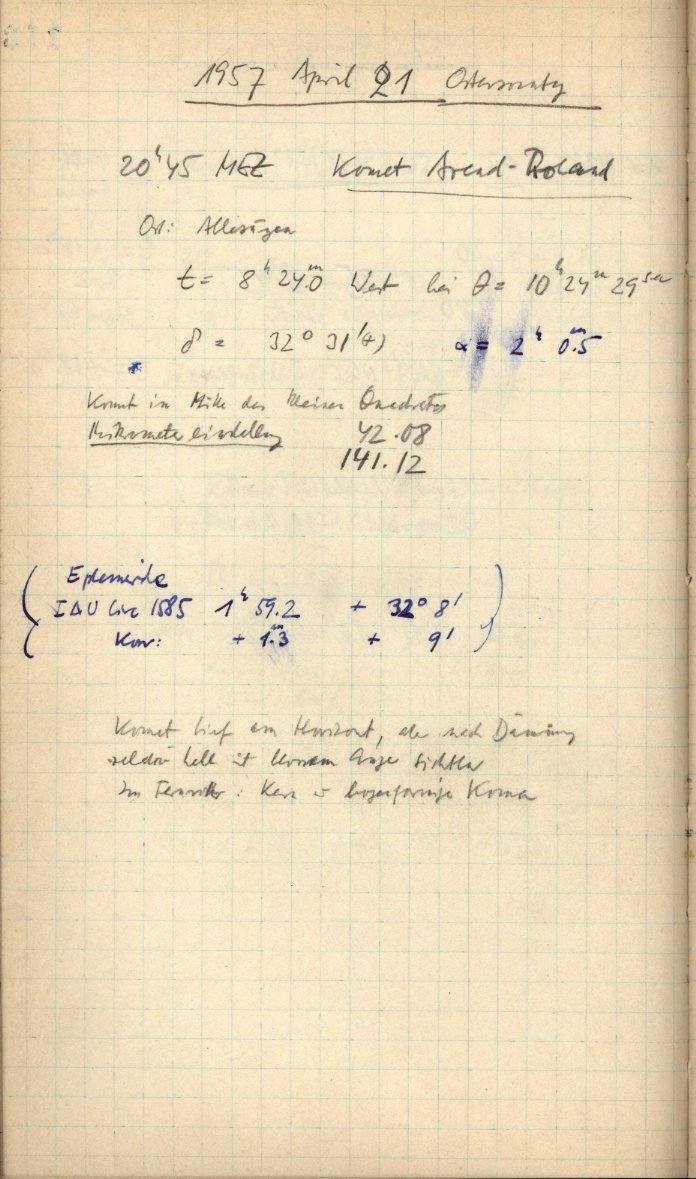 1957 April 21 Ostersonntag
20h45 MEZ Komet Arend-Roland
Ort:
t = 8h 24m.0 West bei θ = 10h 24m 29sec
δ = 32° 31'(+) α = 2h 0m.5
Komet in Mitte des kleinen Quadrates
Mikrometereinstellung 42.08
141.12
Ephemeride
IAU Circ 1585 1h 59.2 + 32° 8'
Korr: + 1m.3 + 9'
Komet tief am Horizont, aber nach Dämmerung
hell mit blossem Auge sichtbar
Im Fernrohr: Kern u
Koma